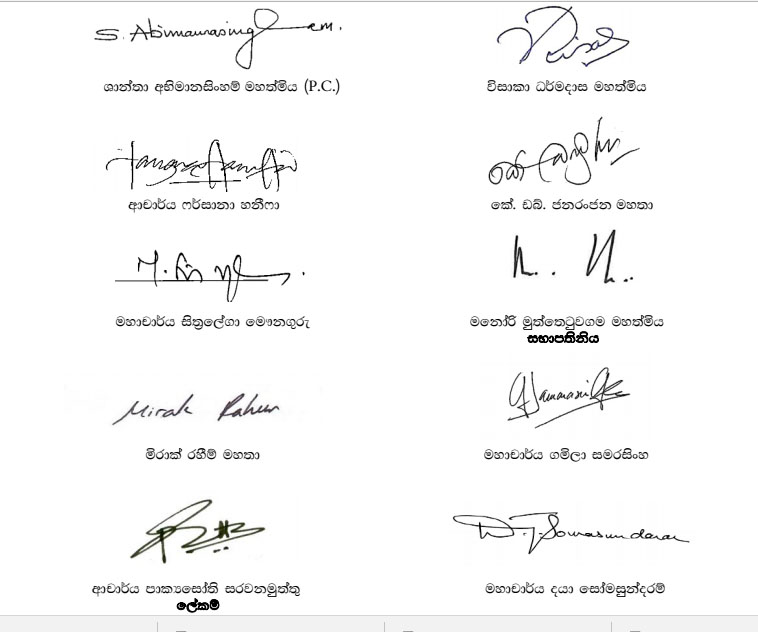 S. Abimanasingham.
ශාන්තා අභිමානසිංහම් මහත්මිය (P.C.)
විසාකා ධර්මදාස මහත්මිය
ආචාර්ය ෆර්සානා හනීෆා
කේ. ඩබ්. ජනරංජන මහතා
මහාචාර්ය සිත්‍රලේගා මෞනගුරු
මනෝරි මුත්තෙටුවගම මහත්මිය
සභාපතිනිය
Mirak Raheem
මිරාක් රහීම් මහතා
මහාචාර්ය ගමිලා සමරසිංහ
ආචාර්ය පාක්‍යසෝති සරවනමුත්තු
ලේකම්
D. J. Somasundaram
මහාචාර්ය දයා සෝමසුන්දරම්